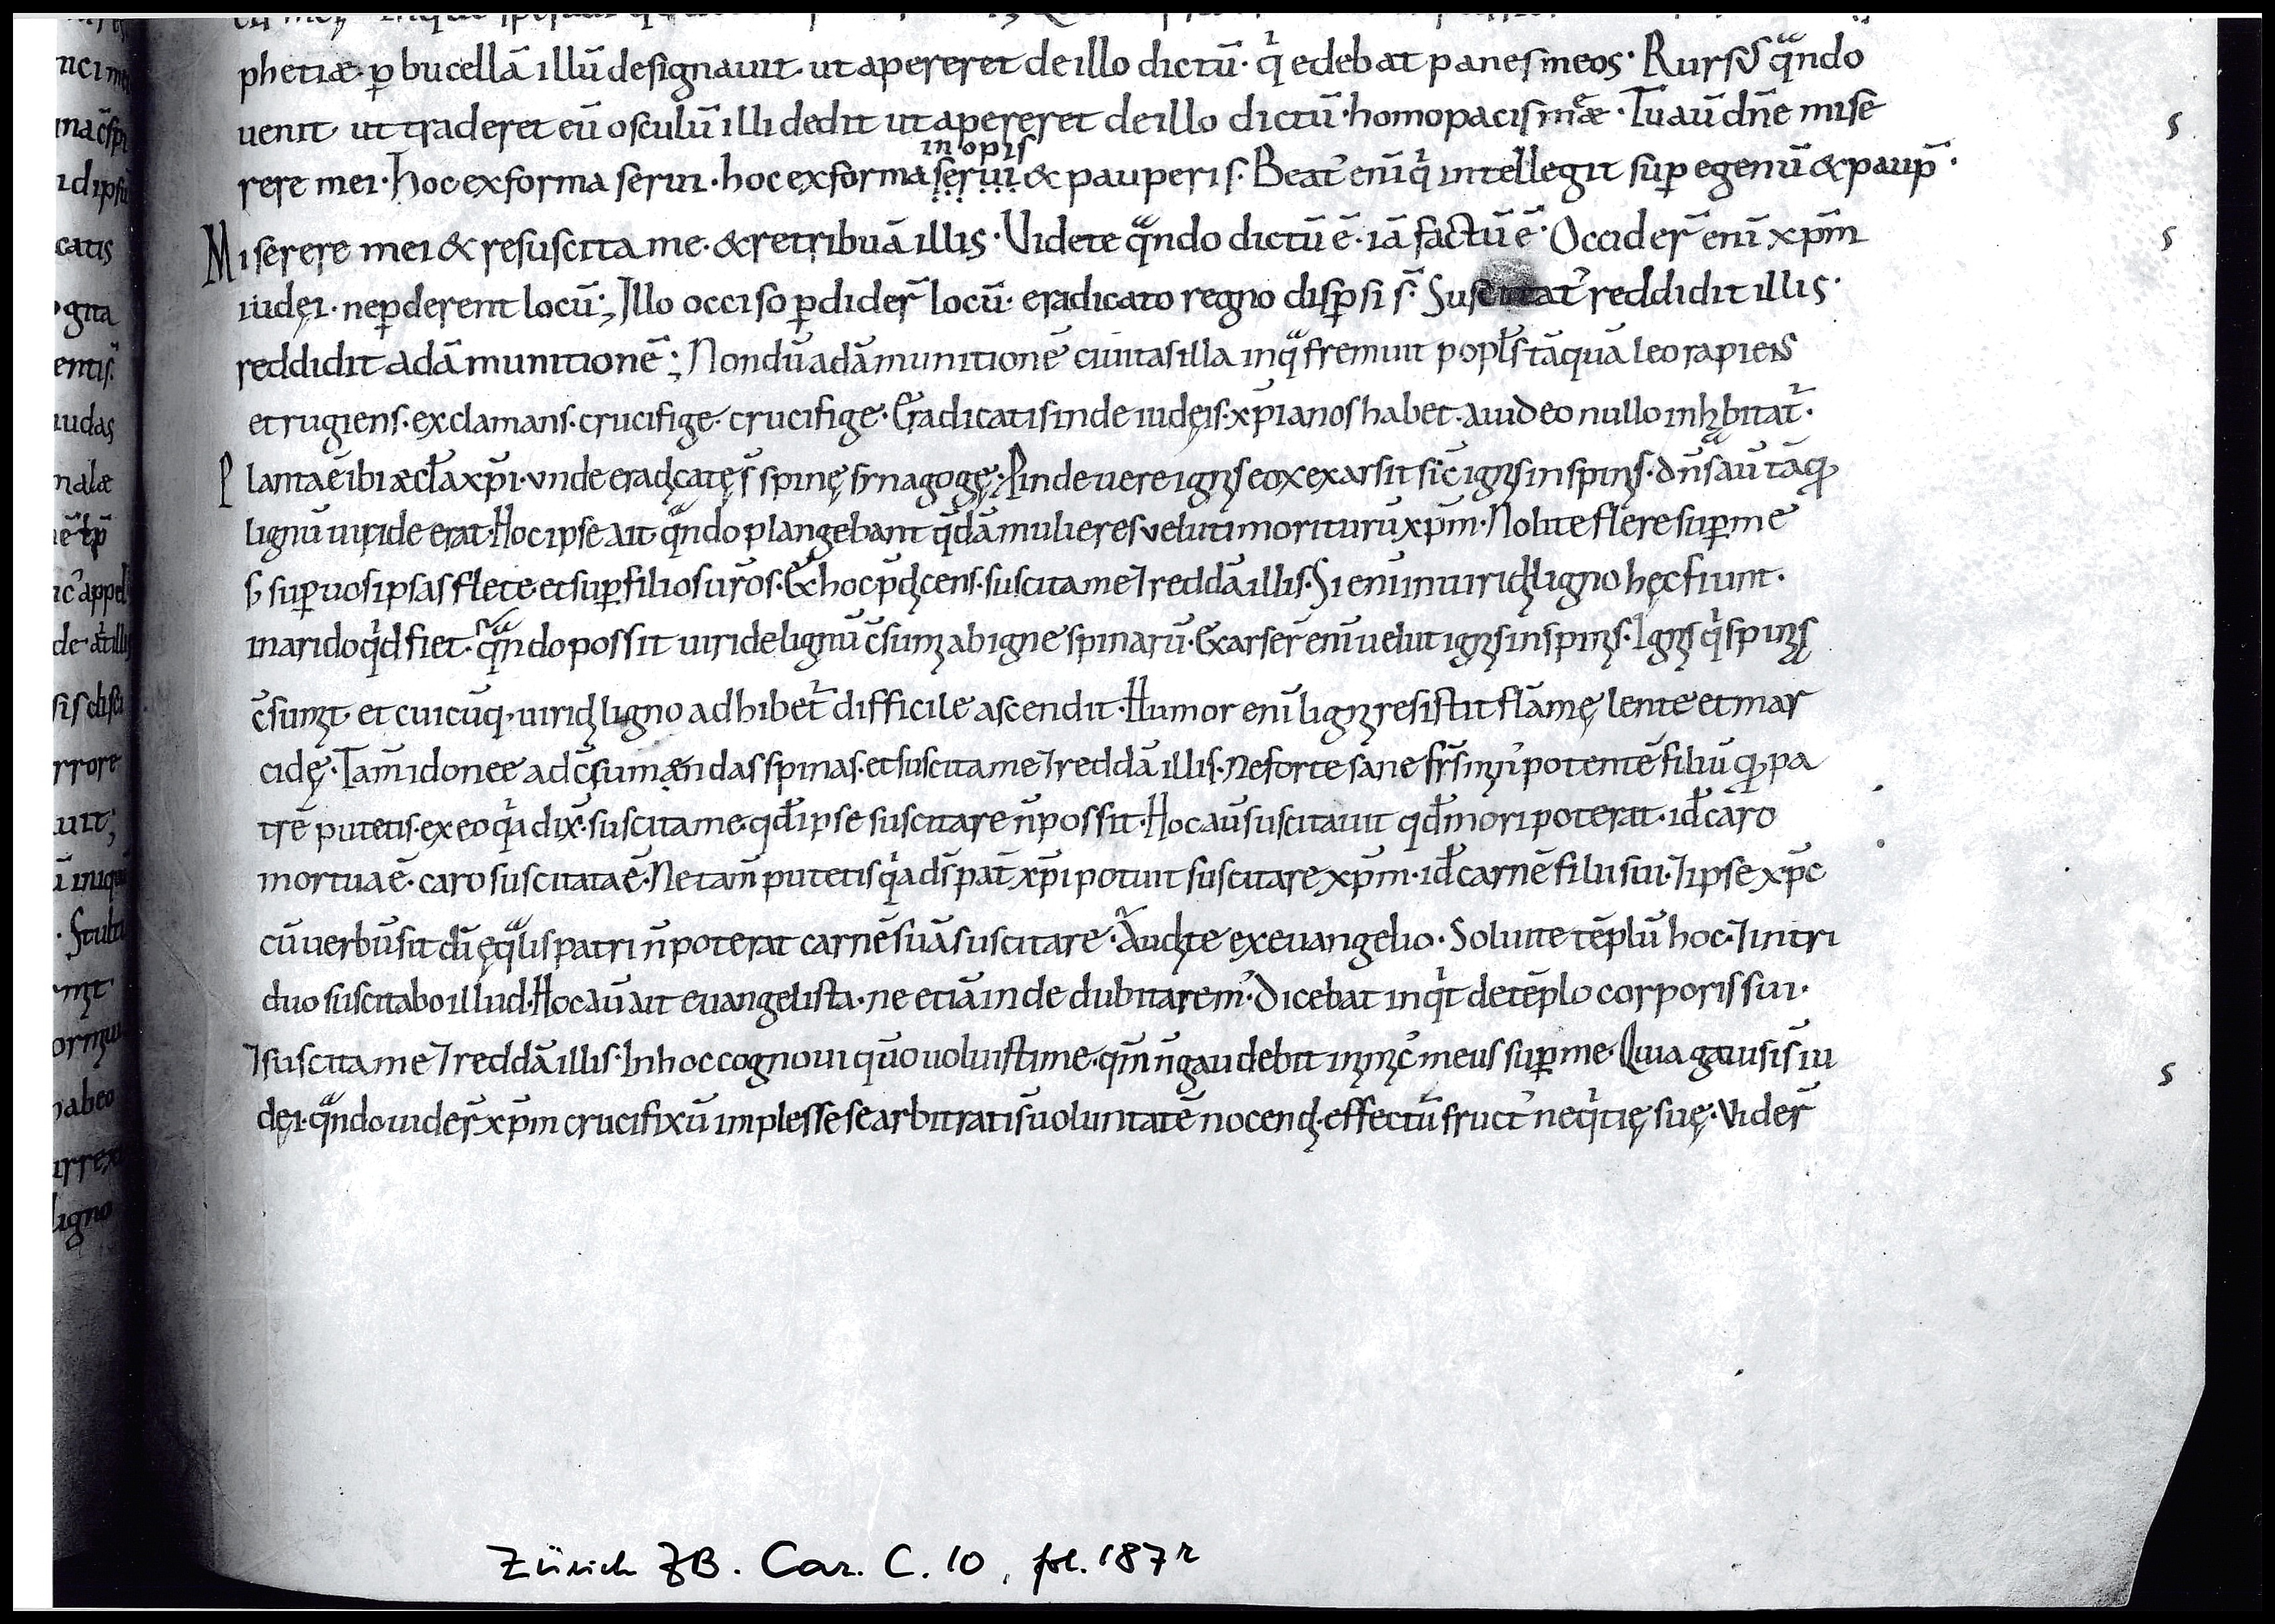 phetiæ· p̄ bucellā illū designauit· ut apereret de illo dictū· qͥ edebat panes meos· Rursū qᷓndo
uenit ut traderet eū osculū illi dedit ut apereret de illo dictū· homo pacis meæ· Tu aū dn̄e mise
rere mei· hoc ex forma serui· hoc ex forma serui & pauperis· Beatꝰ enī qͥ intellegit suꝑ egenū & pauꝑ·
inopis
Miserere mei & resuscita me· & retribuā illis· Videte qᷓndo dictū ē· iā factū ē· Occider̄ enī xp̄m
iudęi· ne ꝑderent locū; Illo occiso ꝑdider̄ locū· eradicato regno disꝑsi s̄· Suscitatꝰ reddidit illis·
reddidit adāmunitionē; Nondū adāmunitionē ciuitas illa in qᷓ fremuit popl̄s tāquā leo rapiens
et rugiens· exclamans· crucifige· crucifige· Eradicatis inde iudęis· xp̄ianos habet· a iudeo nullo inhabitat᷑·
Planta ē ibi æcl̄a xp̄i· unde eradicatę s̄ spinę synagogę· Pinde uere ignis eoꝝ exarsit sic̄ ignis in spinis· dn̄s aū tāꝙ
lignū uiride erat· Hoc ipse ait· qᷓndo plangebant qͥdā mulieres veluti moriturū xp̄m· Nolite flere suꝑ me
s; suꝑ uos ipsas flete· et suꝑ filios ur̄os· Ex hoc p̄dicens· suscita me ⁊ reddā illis· Si enī in uiridi ligno hęc fiunt·
in arido qͥd fiet· qᷓndo possit uiride lignū c̄sumi ab igne spinarū· Exarser̄ enī uelut ignis in spinis· Ignis qͥ spinis
c̄sumit· et cuicūq· uiridi ligno adhibet᷑ difficile ascendit· Humor enī ligni resistit flāmę lente et mar
cidę· Tam̄ idonee ad c̄sumændas spinas· et suscita me ⁊ reddā illis· Ne forte sane fr̄s minꝰ potentē filiū ꝙ pa
trē putetis· ex eo qͥa dix̄· suscita me· qd̄ ipse suscitare n̄ possit· Hoc aū suscitauit qd̄ mori poterat· id̄ caro
mortua ē· caro suscitata ē· Ne tam̄ putetis qͥa ds̄ pat̄ xp̄i potuit suscitare xp̄m· id̄ carnē filii sui· ⁊ ipse xp̄c
cū uerbū sit dī ęqᷓlis patri n̄ poterat carnē suā suscitare· Audite ex euangelio· Soluite tēplū hoc· ⁊ in tri
duo suscitabo illud· Hoc aū ait euangelista· ne etiā inde dubitarem̓· Dicebat inqͥt de tēplo corporis sui·
⁊ suscita me ⁊ reddā illis· In hoc cognoui quo uoluisti me· qm̄ n̄ gaudebit inimicꝰ meus suꝑ me· Quia gauisi s̄ iu
dęi· qᷓndo uider̄ xp̄m crucifixū implesse se arbitrati s̄ uoluntatē nocendi· effectū fructꝰ neqͥtię suę· Vider̄
s
s
s
Zürich ZB. Car. C. 10, fol. 187r